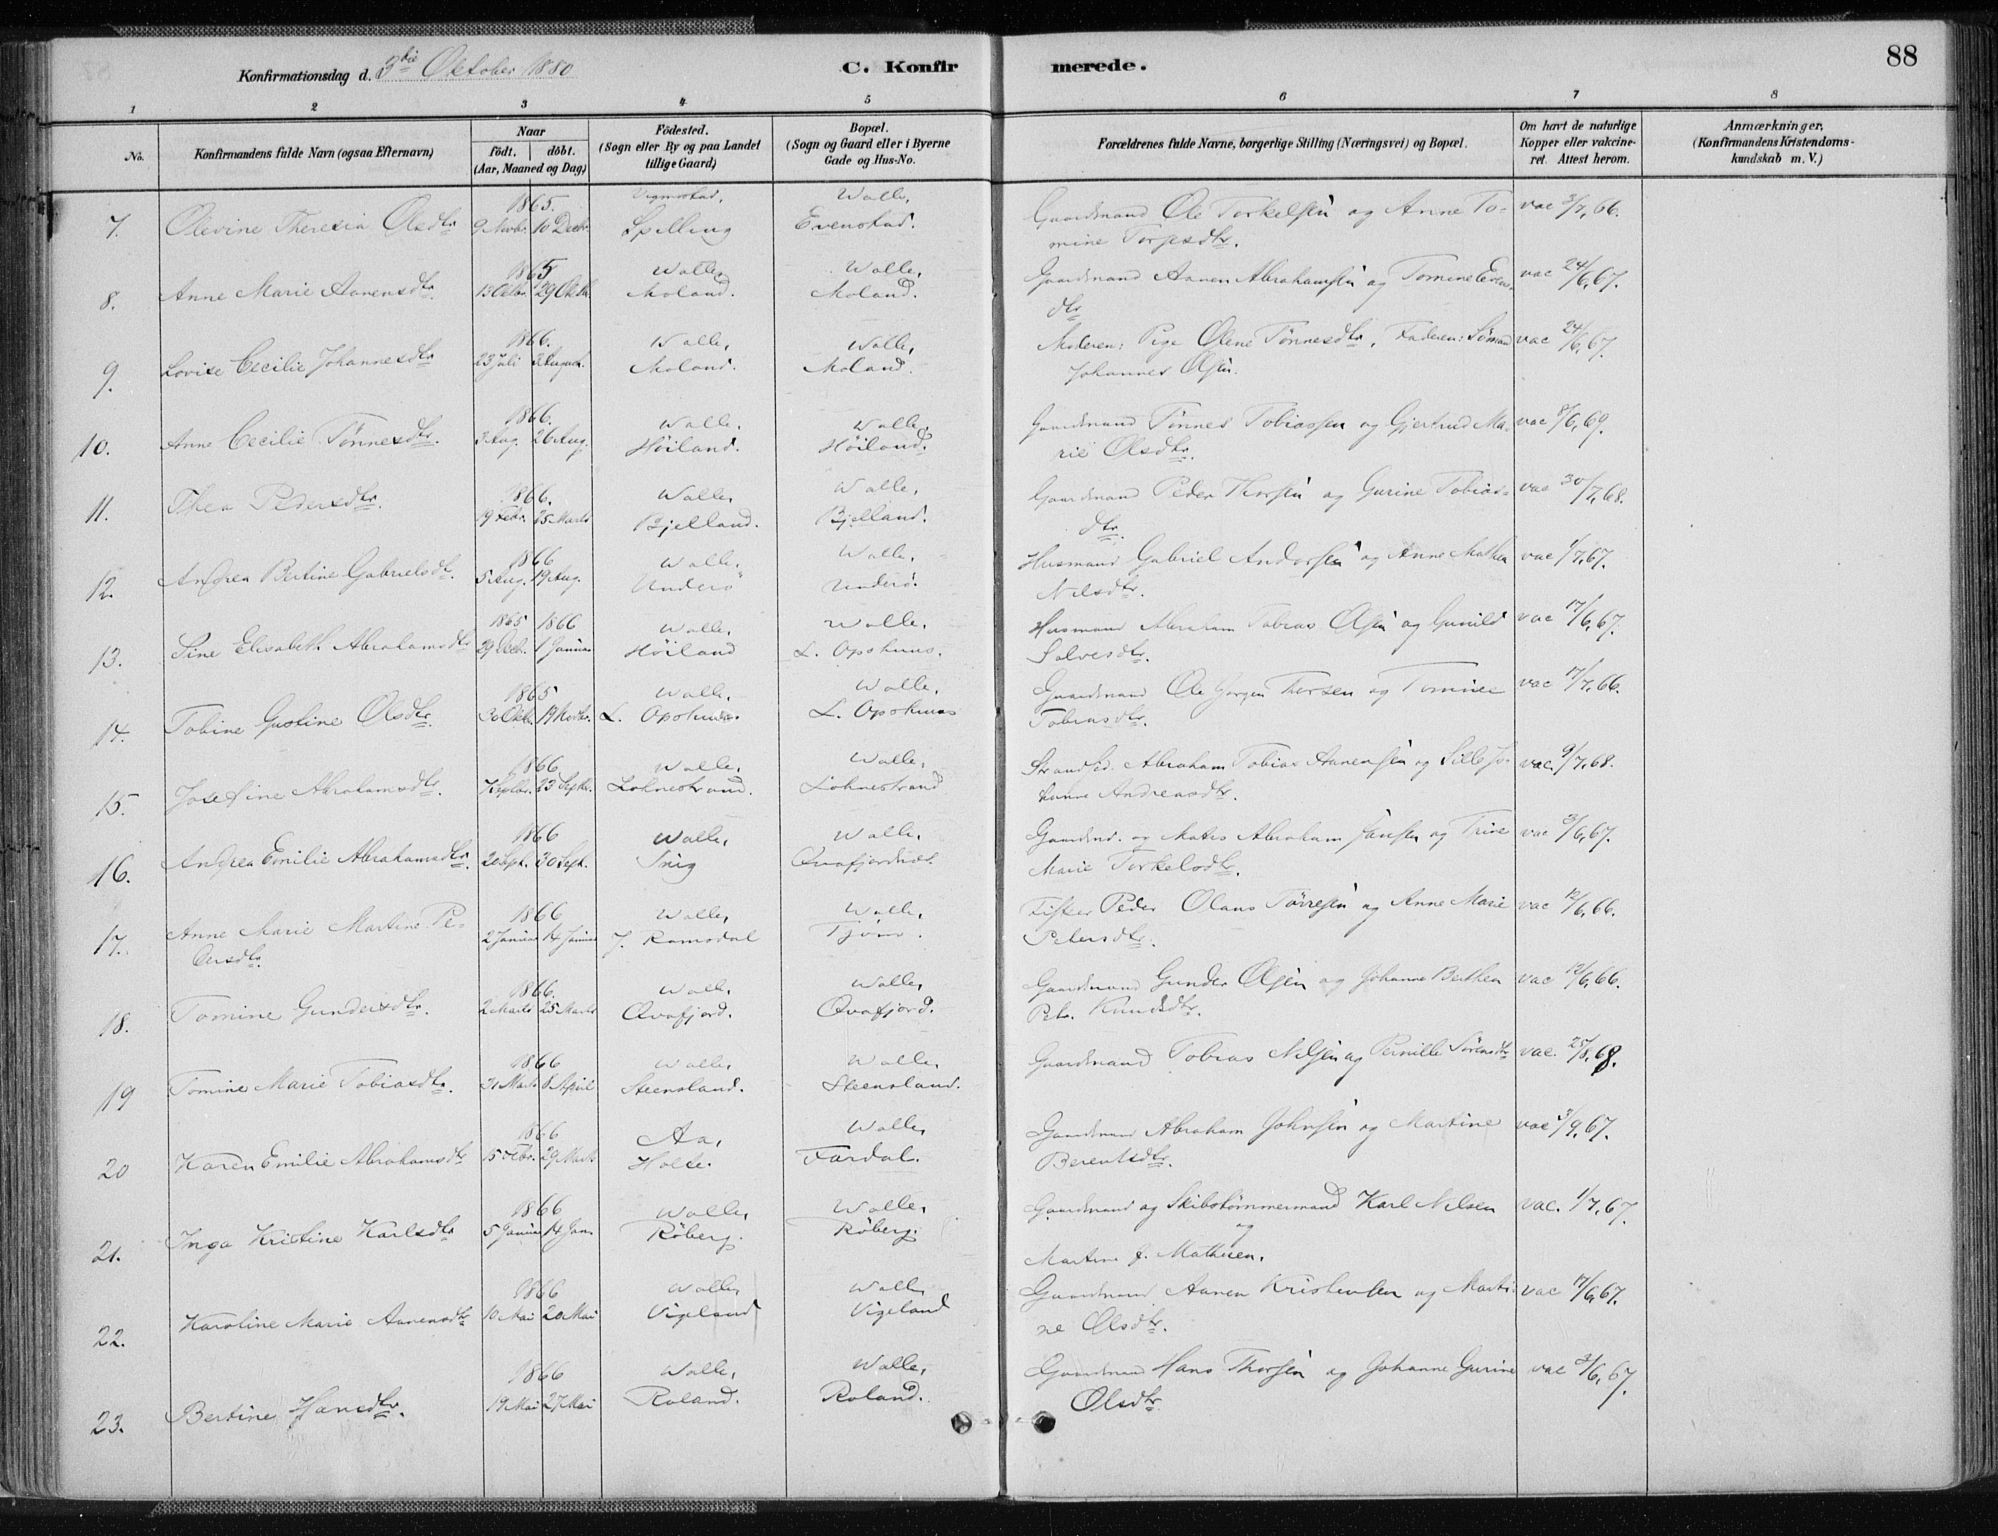 Konfirmationsdag d. 3die Oktober 1880
C. Konfirmerede.
88
1 2 3 4 5 6 7 8
No.
Konfirmandens fulde Navn (ogsaa Efternavn)
Naar
født. døbt.
(Aar, Maaned og Dag)
Fødested.
(Sogn eller By og paa Landet
tillige Gaard)
Bopæl.
(Sogn og Gaard eller i Byerne
Gade og Hus-No.
Forældrenes fulde Navne, borgerlige Stilling (Næringsvei) og Bopæl.
Om havt de naturlige
Kopper eller vakcine-
ret. Attest herom.
Anmærkninger.
(Konfirmandens Kristendoms-
kundskab m. V.)
1865 Vigmostad, Walle,
7. Olevine Theresia Olsdtr 9 Novbr. 10 Decbr. Spilling Evenstad. Gaardmand Ole Torkelsen og Anne To- vac 3/7, 66.
mine Torjesdtr.
1865 Walle, Walle,
8. Anne Marie Aanensdtr 29 Oktbr. Moland. Moland. Gaardmand Aanen Abrahamsen og Tomine Evens- vac 24/6, 67.
dtr
1866. Walle, Walle,
9. Lovise Cecilie Johannesdtr 23 Juli August. Moland. Moland. Moderen: Pige Olene Tønnesdtr, Faderen: Sømand vac 24/6, 67.
Johannes Olsen.
1866. Walle, Walle,
10. Anne Cecilie Tønnesdtr. 3 Aug. 26 Aug. Høiland. Høiland. Gaardmand Tønnes Tobiassen og Gjertrud Ma- vac 8/6, 69.
rie Olsdtr.
1866. Walle, Walle,
11. Thea Pedersdtr. 19 Febr. 25 Marts Bjelland. Bjelland. Gaardmand Peder Thorsen og Gurine Tobias- vac 30/7, 68.
dtr.
1866 Walle, Walle,
12. Andrea Bertine Gabrielsdtr. 5 Aug. 19 Aug. Underø Underø. Husmand Gabriel Andersen og Anne Mathea vac 1/7, 67.
Nilsdtr.
1865 1866 Walle, Walle,
13. Sine Elisabeth Abrahamsdtr 29 Dec. 1 Januar Høiland L. Opshuus. Husmand Abraham Tobias Olsen og Gunild vac 17/6, 67.
Salvesdtr.
1865 Walle, Walle,
14. Tobine Gustine Olsdtr. 30 Oktb. 19 Novbr. L. Opshuus. L. Opshuus Gaardmand Ole Jørgen Thorsen og Tomine vac 17/7, 66.
Tobiasdtr.
1866 Walle, Walle,
15. Josefine Abrahamsdtr. 7 Septbr. 23 Septbr. Lohnestrand. Lohnestrand Strandsid. Abraham Tobias Aanensen og Sille Jo- vac. 9/7, 68.
hanne Andreasdtr.
1866 Walle, Walle,
16. Andrea Emilie Abrahamsdtr. 20 Sept. 30 Sept. Snig Qvafjordnes. Gaardmd. og Matros Abraham Jansen og Trine vac 3/6, 67.
Marie Torkelsdtr.
1866 Walle, Walle,
17. Anne Marie Martine Pe- 2 Januar 14 Januar J. Ramsdal Tjøm. Fisker Peder Olaus Tørresen og Anne Marie vac 12/6, 66.
dersdtr. Petersdtr.
1866. Walle, Walle,
18. Tomine Gundersdtr. 2 Marts 25 Marts Qvafjord. Qvafjord. Gaardmand Gunder Olsen og Johanne Berthea vac 12/6, 66.
Knudsdtr.
1866 Walle, Walle,
19 Tomine Marie Tobiasdtr. 31 Marts 8 April Steensland. Steensland. Gaardmand Tobias Nilsen og Pernille Sørensdtr vac. 25/8, 68.
1866 Aa, Walle,
20 Karen Emilie Abrahamsdtr 15 Febr. 29 Marts Holte. Fardal. Gaardmand Abraham Johnsen og Martine vac 3/9, 67.
Berentsdtr.
1866 Walle, Walle,
21. Inga Kristine Karlsdtr 5 Januar 14 Jan. Røberg. Røberg. Gaardmand og Skibstømmermand Karl Nilsen vac. 1/7, 67.
og
Martine f. Mathisen.
1866 Walle, Walle,
22. Karoline Marie Aanensdtr 10 Mai 20 Mai Vigeland Vigeland Gaardmand Aanen Kristensen og Marti- vac 17/6, 67.
ne Olsdtr.
1866 Walle, Walle,
23. Bertine Hansdtr. 19 Mai 27 Mai Roland. Roland. Gaardmand Hans Thorsen og Johanne Gurine vac 3/6, 67.
Olsdtr.